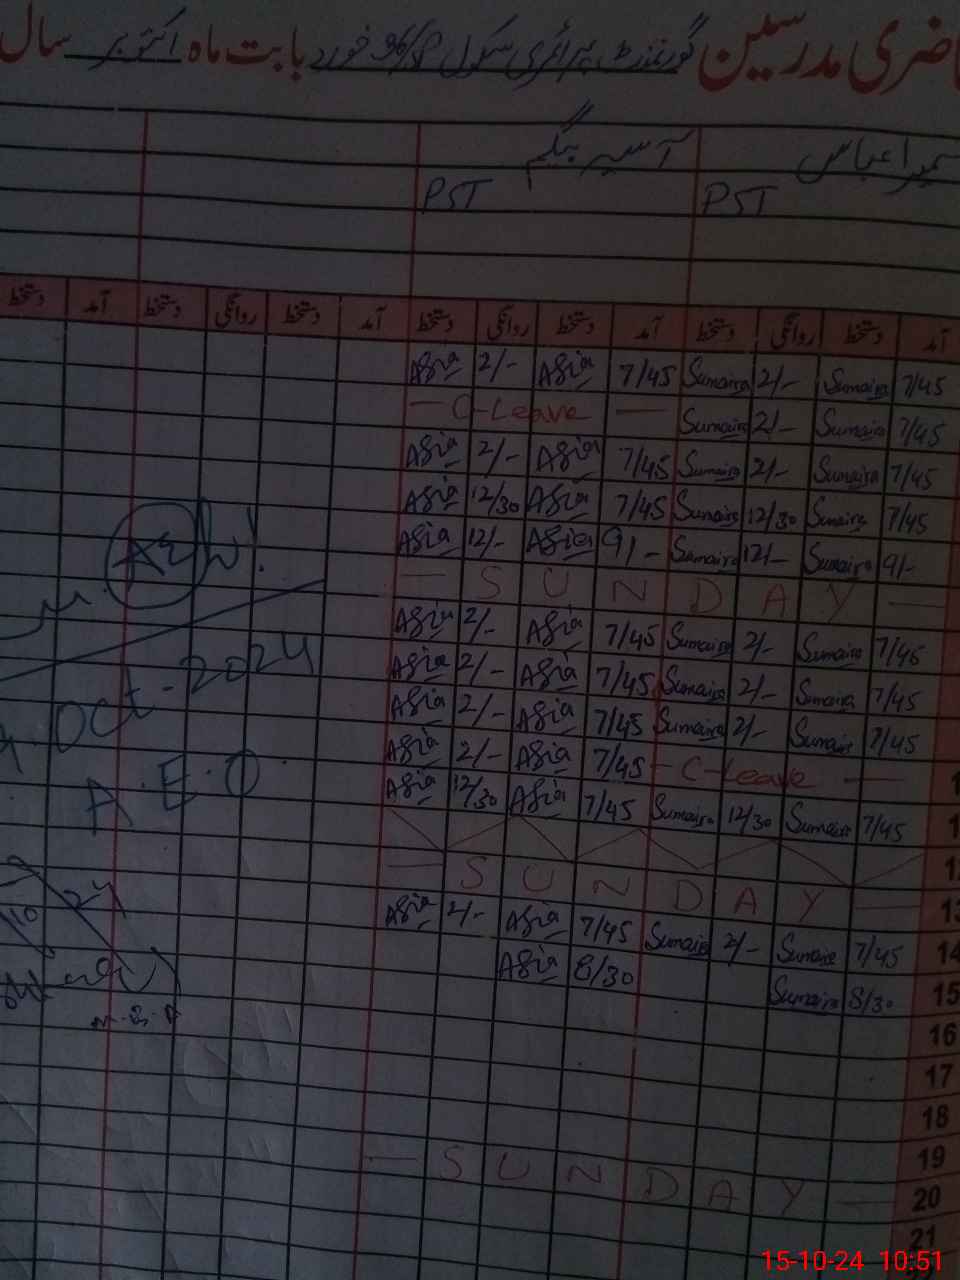 حاضری مدرسین گورنمنٹ پرائمری سکول 96/P خورد بابت ماہ اکتوبر سال
سمیرا عباس آسیہ بیگم
PST PST
آمد دستخط روانگی دستخط آمد دستخط روانگی دستخط آمد دستخط روانگی دستخط آمد دستخط
Asia 2/- Asia 7/45 Sumaira 2/- Sumaira 7/45
— C-Leave — Sumaira 2/- Sumaira 7/45
Asia 2/- Asia 7/45 Sumaira 2/- Sumaira 7/45
Asia 12/30 Asia 7/45 Sumaira 12/30 Sumaira 7/45
Asia 12/- Asia 9/- Sumaira 12/- Sumaira 9/-
— SUNDAY —
Asia 2/- Asia 7/45 Sumaira 2/- Sumaira 7/45
Asia 2/- Asia 7/45 Sumaira 2/- Sumaira 7/45
Asia 2/- Asia 7/45 Sumaira 2/- Sumaira 7/45
Asia 2/- Asia 7/45 — C-Leave —
Asia 12/30 Asia 7/45 Sumaira 12/30 Sumaira 7/45
12
— SUNDAY — 13
Asia 2/- Asia 7/45 Sumaira 2/- Sumaira 7/45 14
Asia 8/30 Sumaira 8/30 15
16
17
18
19
— SUNDAY — 20
21
Oct-2024
A.E.O
15-10-24 10:51